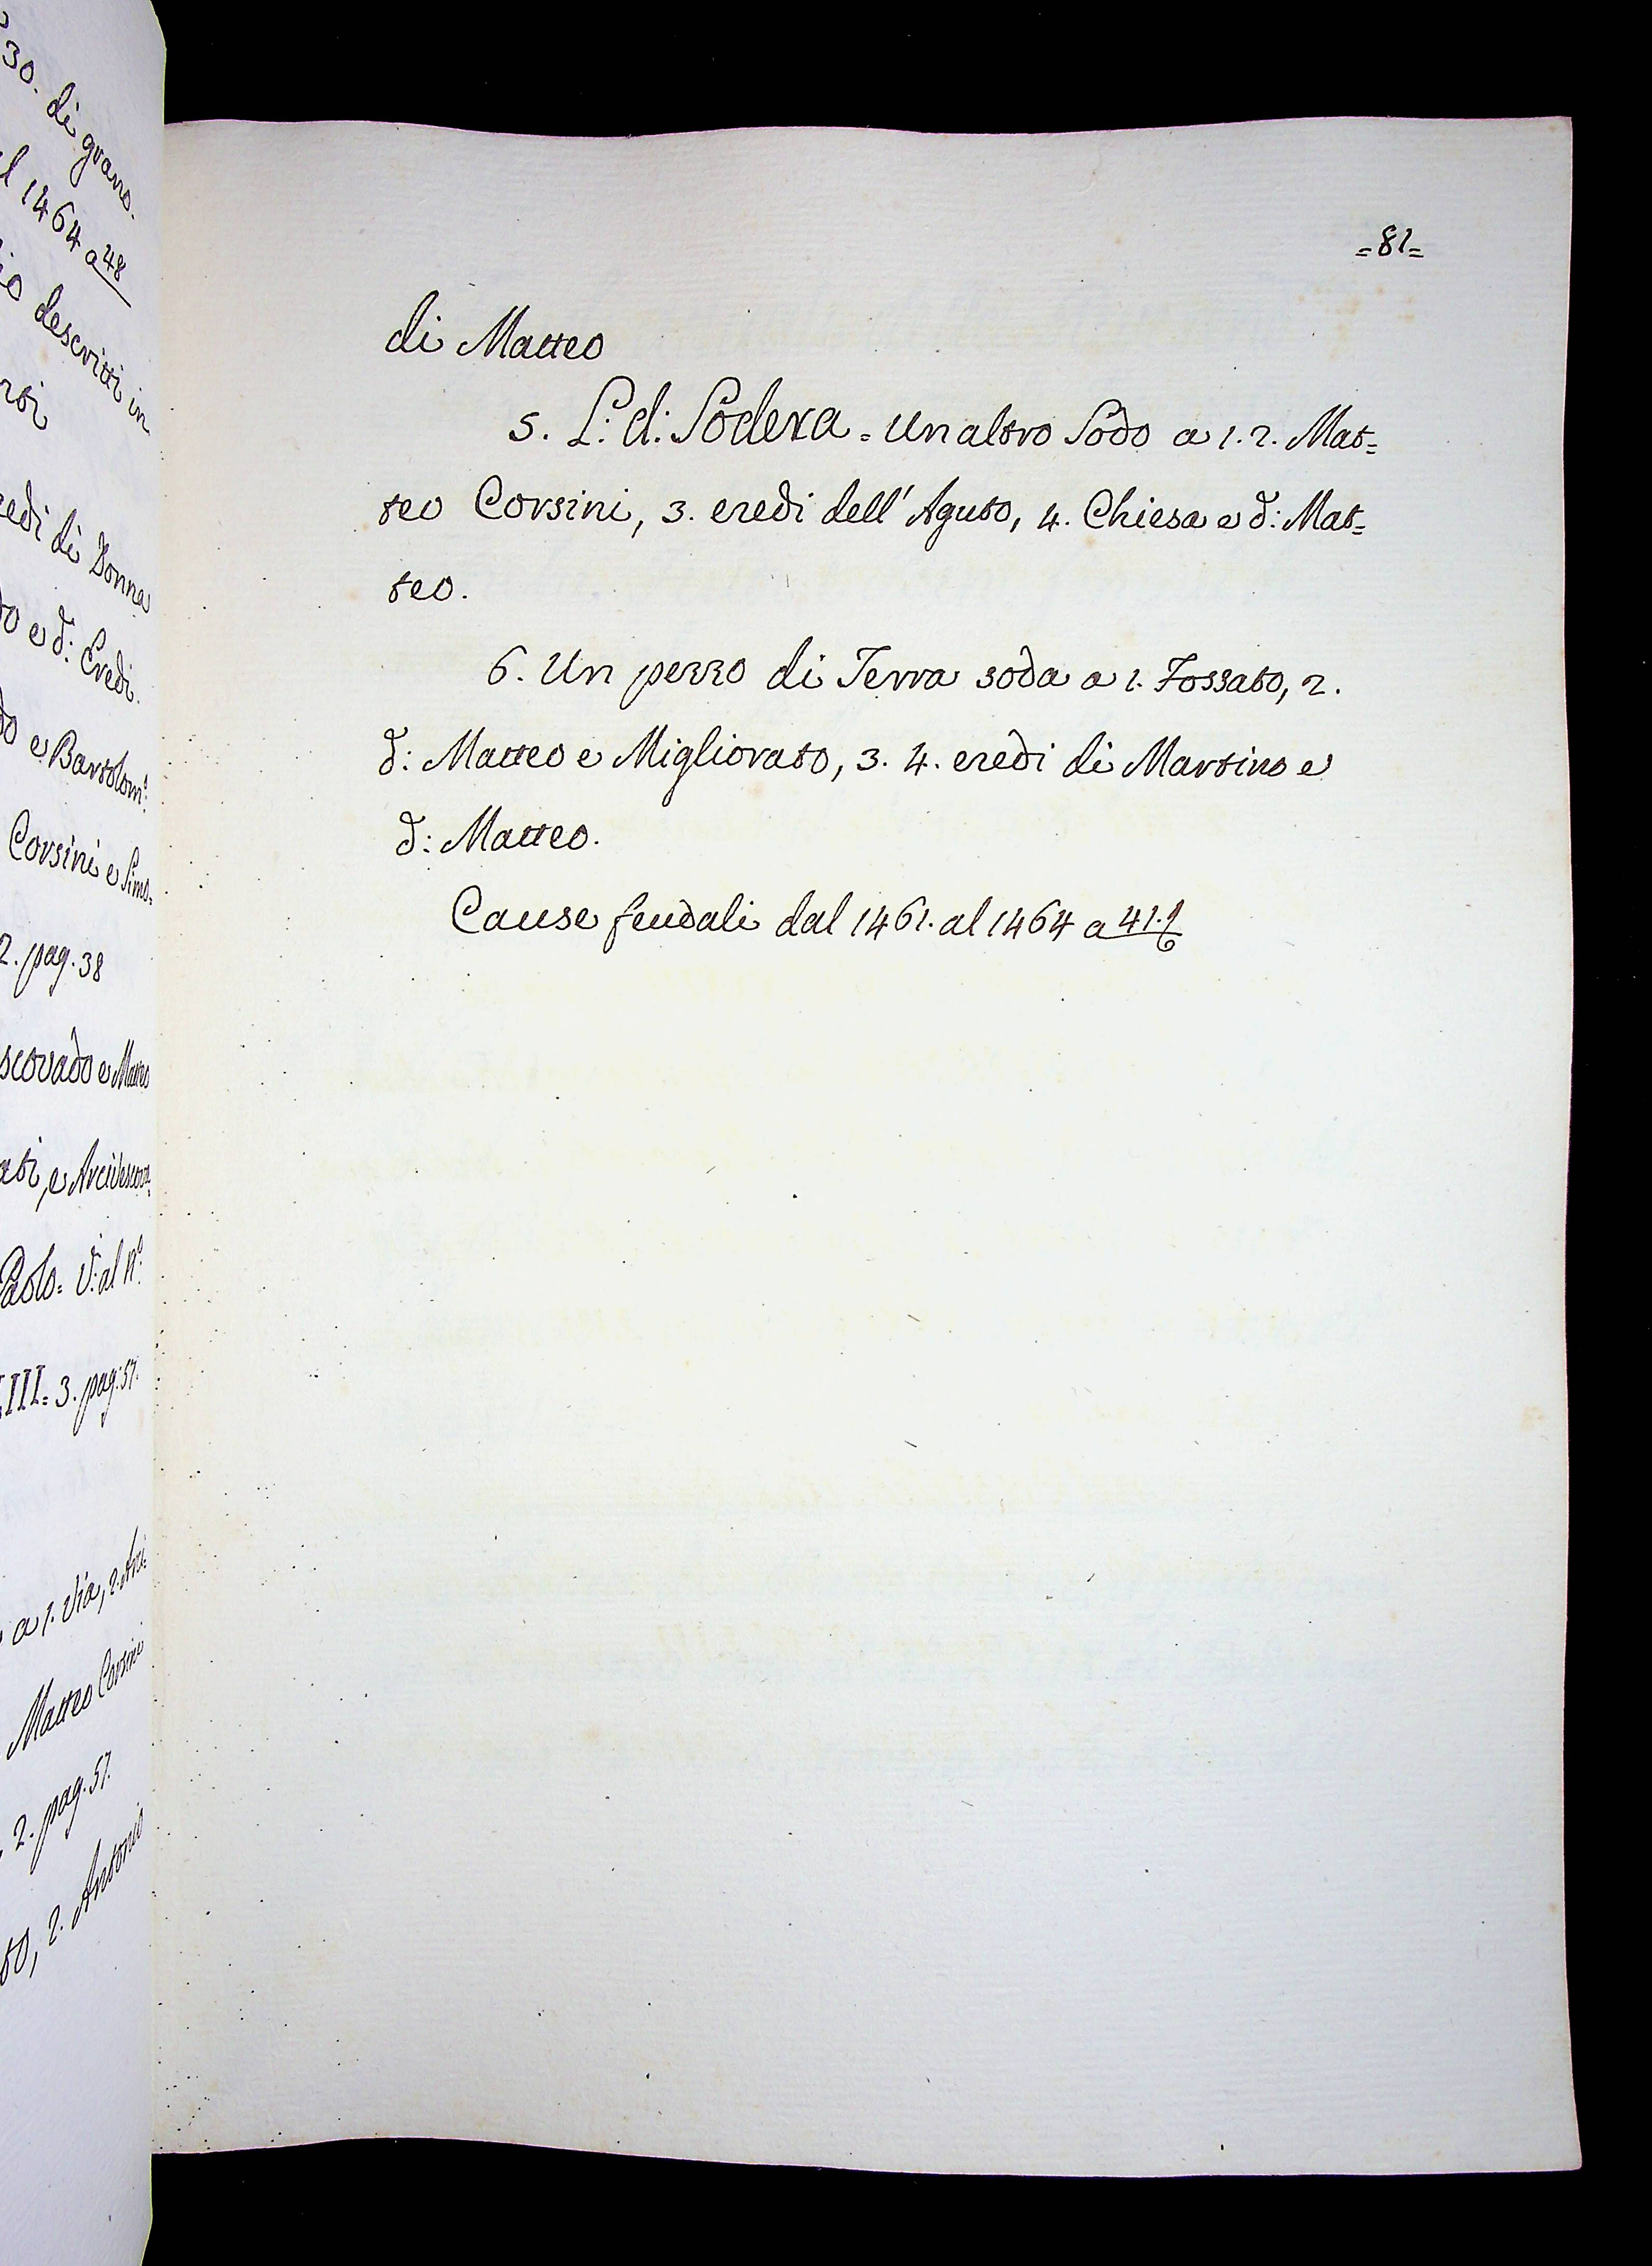 30. di grano.
l 1464 a 48
descritti in
redi di Donna
do e d: Eredi.
do e Bartolom:
Corsini e Simo-
2. pag. 38
scovado e Matteo
ati, e Arcivescova-
Paolo= V: al N.º
III= 3. pag: 57.
a 1. Via, 2. Arci-
Matteo Corsini
2. pag. 57.
to, 2. Antonio
=81=
di Matteo
5. L: d: Sodera = Un altro Sodo a 1. 2. Mat=
teo Corsini, 3. eredi dell' Aguto, 4. Chiesa e d: Mat=
teo.
6. Un pezzo di Terra soda a 1. Fossato, 2.
d: Matteo e Migliorato, 3. 4. eredi di Martino e
d: Matteo.
Cause feudali dal 1461. al 1464 a 41.